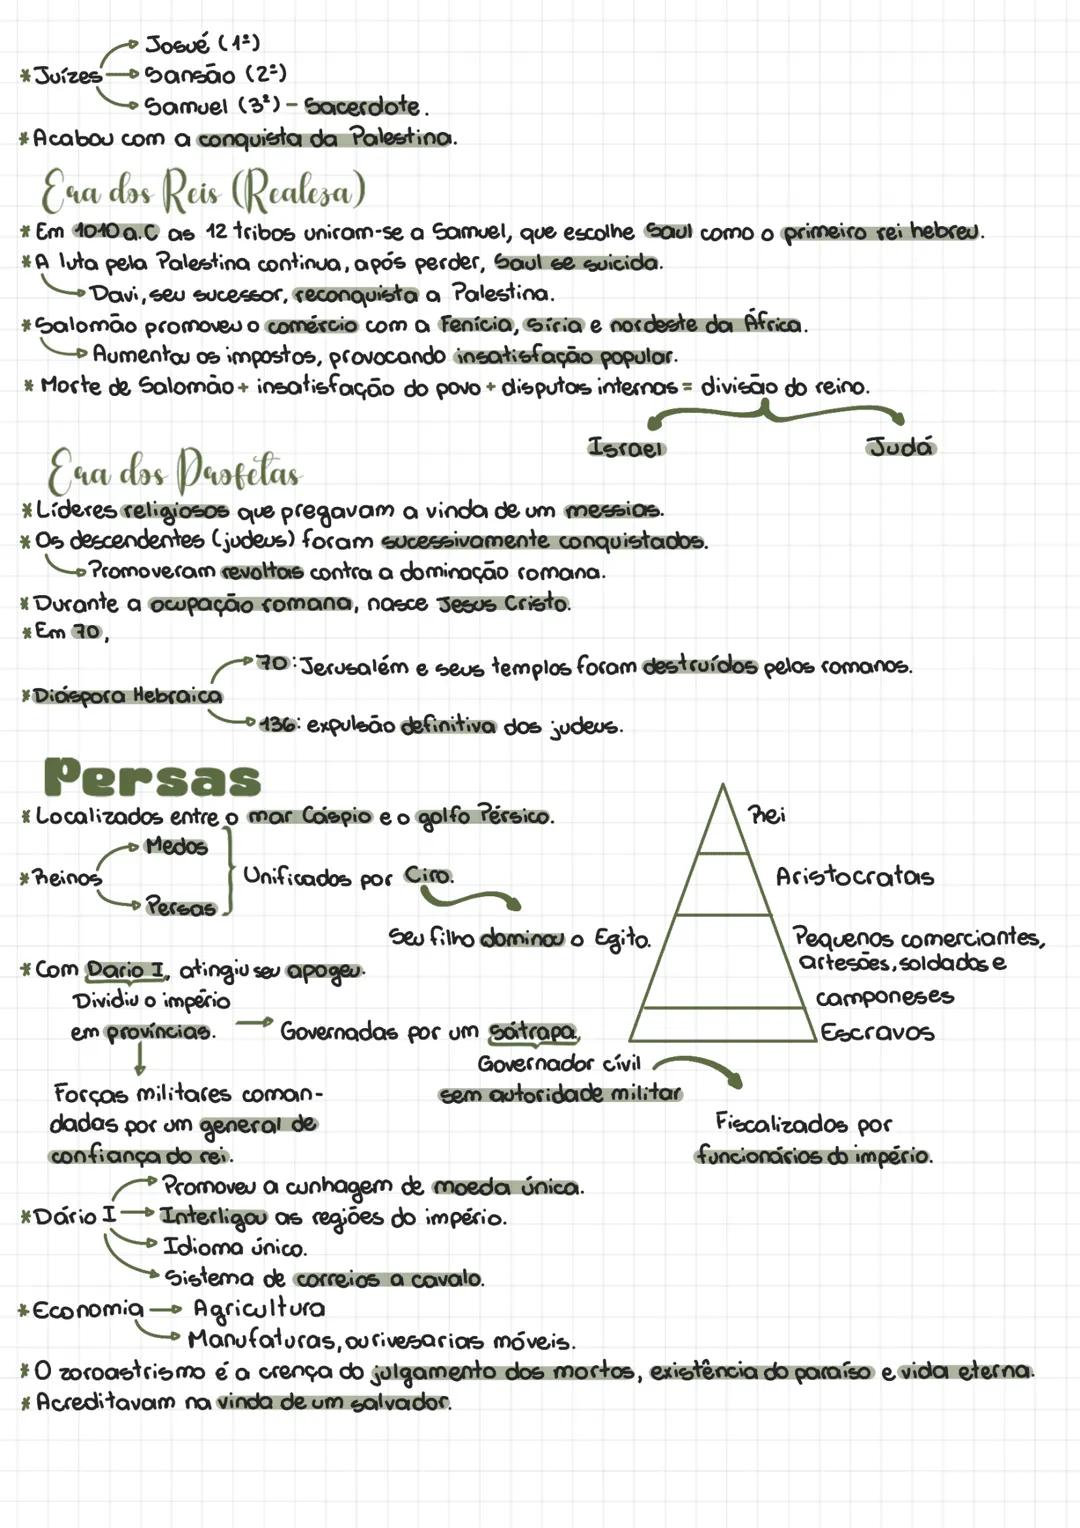 Josué (1º)
*Juízes Sansão (2º)
Samuel (3º) - Sacerdote.
*Acabou com a conquista da Palestina.
Era dos Reis (Realeza)
*Em 1010 a.C as 12 tribos uniram-se a Samuel, que escolhe Saul como o primeiro rei hebreu.
*A luta pela Palestina continua, após perder, Saul se suicida.
Davi, seu sucessor, reconquista a Palestina.
*Salomão promoveu o comércio com a Fenícia, Síria e nordeste da África.
Aumentou os impostos, provocando insatisfação popular.
* Morte de Salomão + insatisfação do povo + disputas internas = divisão do reino.
Israel Judá
Era dos Profetas
*Líderes religiosos que pregavam a vinda de um messias.
*Os descendentes (judeus) foram sucessivamente conquistados.
Promoveram revoltas contra a dominação romana.
*Durante a ocupação romana, nasce Jesus Cristo.
*Em 70,
70: Jerusalém e seus templos foram destruídos pelos romanos.
*Diáspora Hebraica
136: expulsão definitiva dos judeus.
Persas
*Localizados entre o mar Cáspio e o golfo Pérsico.
Rei
Medos
*Reinos Unificados por Ciro.
Aristocratas
Persas
Seu filho dominou o Egito.
Pequenos comerciantes,
artesões, soldados e
camponeses
Escravos
*Com Dario I, atingiu seu apogeu.
Dividiu o império
em províncias. Governadas por um sátrapa.
Governador cívil
sem autoridade militar
Forças militares coman-
dadas por um general de
confiança do rei.
Fiscalizados por
funcionários do império.
Promoveu a cunhagem de moeda única.
*Dário I Interligou as regiões do império.
Idioma único.
Sistema de correios a cavalo.
*Economia Agricultura
Manufaturas, ourivesarias móveis.
*O zoroastrismo é a crença do julgamento dos mortos, existência do paraíso e vida eterna.
*Acreditavam na vinda de um salvador.